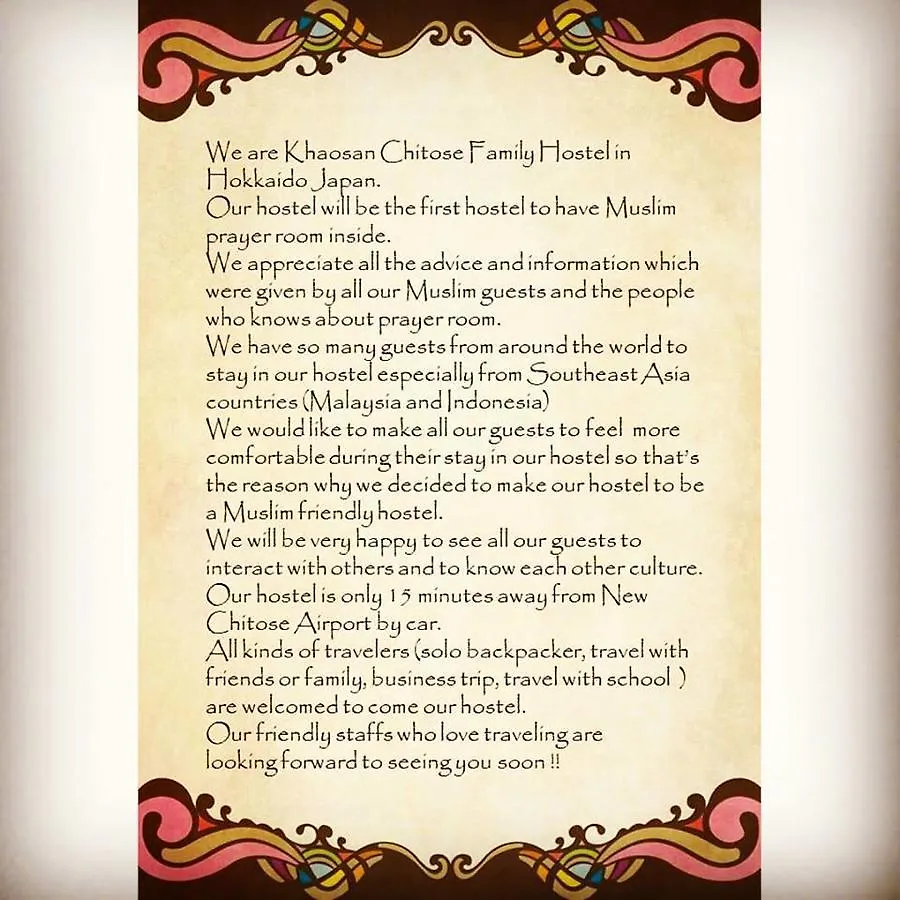 We are Khaosan Chitose Family Hostel in
Hokkaido Japan.
Our hostel will be the first hostel to have Muslim
prayer room inside.
We appreciate all the advice and information which
were given by all our Muslim guests and the people
who knows about prayer room.
We have so many guests from around the world to
stay in our hostel especially from Southeast Asia
countries (Malaysia and Indonesia)
We would like to make all our guests to feel more
comfortable during their stay in our hostel so that's
the reason why we decided to make our hostel to be
a Muslim friendly hostel.
We will be very happy to see all our guests to
interact with others and to know each other culture.
Our hostel is only 15 minutes away from New
Chitose Airport by car.
All kinds of travelers (solo backpacker, travel with
friends or family, business trip, travel with school )
are welcomed to come our hostel.
Our friendly staffs who love traveling are
looking forward to seeing you soon !!